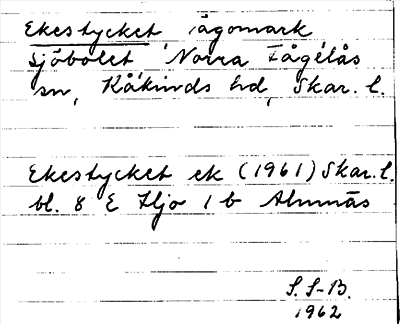 Ekestycket ägomark
Sjöbolet Norra Fågelås
sn, Kåkinds hd, Skar. l.
Ekestycket ek (1961) Skar. l.
bl. 8 E Hjo 1 b Almnäs
S. S-B.
1962